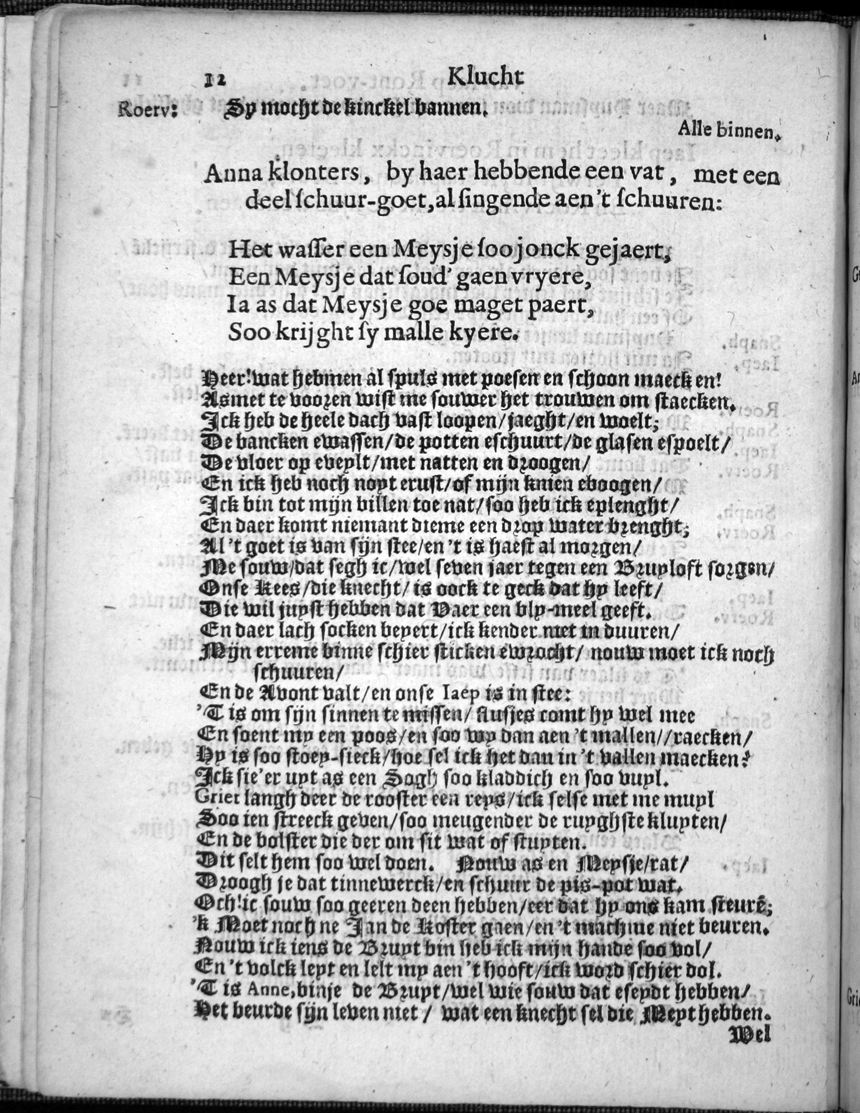 12 Klucht
Roerv: Sy mocht de kinckel bannen.
Alle binnen.
Anna klonters, by haer hebbende een vat, met een
deel schuur-goet, al singende aen 't schuuren:
Het wasser een Meysje soo jonck gejaert,
Een Meysje dat soud' gaen vryere,
Ia as dat Meysje goe maget paert,
Soo krijght sy malle kyere.
Heer! wat hebmen al spuls met poesen en schoon maecken!
Asmet te vooren wist me souwer het trouwen om staecken.
Ick heb de heele dach vast loopen/jaeght/en woelt;
De bancken ewassen/de potten eschuurt/de glasen espoelt/
De vloer op eveylt/met natten en droogen/
En ick heb noch noyt erust/of mijn knien eboogen/
Ick bin tot mijn billen toe nat/soo heb ick eplenght/
En daer komt niemant dieme een drop water brenght;
Al 't goet is van sijn stee/en 't is haest al morgen/
Me souw/dat segh ic/wel seven jaer tegen een Bruyloft sorgen/
Onse Kees/die knecht/is oock te geck dat hy leeft/
Die wil juyst hebben dat Vaer een bly-meel geeft.
En daer lach socken beyert/ick kender niet in duuren/
Mijn erreme binne schier sticken ewrocht/ nouw moet ick noch
schuuren/
En de Avont valt/en onse Iaep is in stee:
'T is om sijn sinnen te missen/ flusjes comt hy wel mee
En soent my een poos/en soo wy dan aen 't mallen//raecken/
Hy is soo stoep-sieck/hoe sel ick het dan in 't vallen maecken?
Ick sie'er uyt as een Sogh soo kladdich en soo vuyl.
Griet langh deer de rooster een reys/ick selse met me muyl
Soo ien streeck geven/soo meugender de ruyghste kluyten/
En de bolster die der om sit wat of stuyten.
Dit selt hem soo wel doen. Nouw as en Meysje/rat/
Droogh je dat tinnewerck/en schuur de pis-pot wat.
Och!ic souw soo geeren deen hebben/eer dat hy ons kam steurē;
'k Moet noch ne Jan de Koster gaen/en 't mach me niet beuren.
Nouw ick iens de Bruyt bin heb ick mijn hande soo vol/
En 't volck leyt en lelt my aen 't hooft/ick word schier dol.
'T is Anne,binje de Bruyt/wel wie souw dat eseydt hebben/
Het beurde sijn leven niet/ wat een knecht sel die Meyt hebben.
Wel